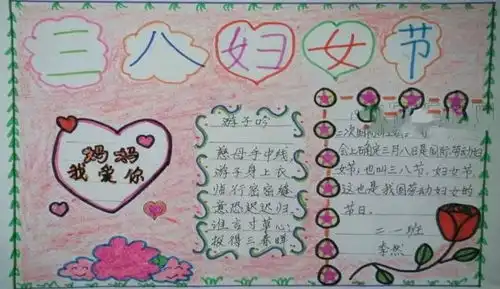 三八妇女节
妈妈
我爱你
游子吟
慈母手中线
游子身上衣
临行密密缝
意恐迟迟归
谁言寸草心
报得三春晖
会上确定三月八日是国际劳动妇
女节,也叫三八节,妇女节,
这也是我国劳动妇女的
节日。
二一班
李然